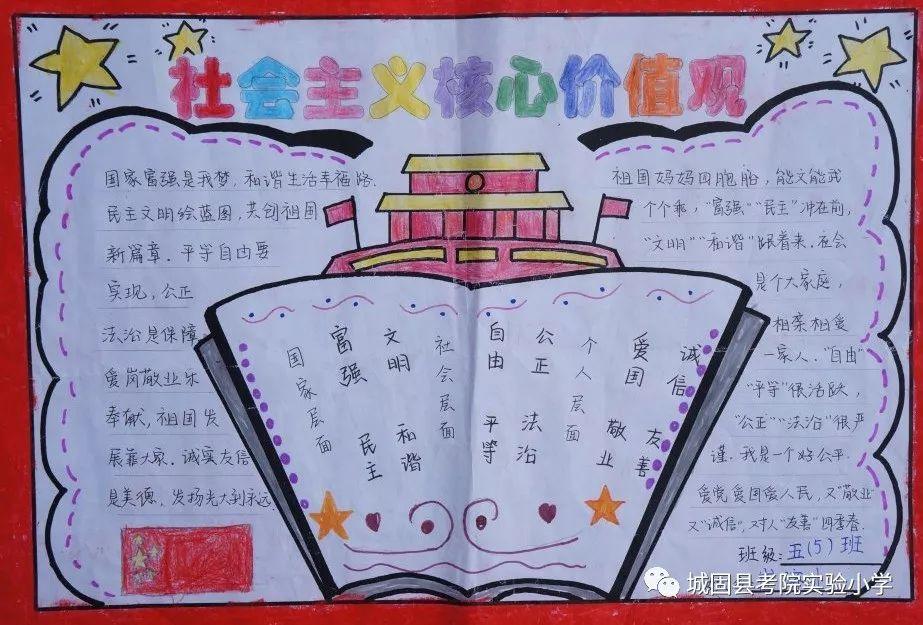 社会主义核心价值观
国家富强是我梦，和谐生活幸福路.
民主文明绘蓝图，共创祖国
新篇章．平等自由要
实现，公正
法治是保障
爱岗敬业乐
奉献，祖国发
展靠大家．诚实友信
是美德，发扬光大到永远.
国家层面
富强
民主
文明
和谐
社会层面
自由
平等
公正
法治
个人层面
爱国
敬业
诚信
友善
祖国妈妈四胞胎，能文能武
个个乖，“富强”“民主”冲在前，
“文明”“和谐”跟着来．社会
是个大家庭，
相亲相爱
一家人．“自由”
“平等”很活跃，
“公正”“法治”很严
谨．我是一个好公平．
爱党爱国爱人民，又“敬业”
又“诚信”，对人“友善”四季春．
班级：五(5)班
城固县考院实验小学